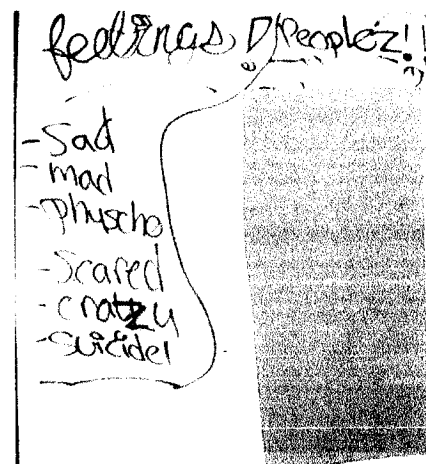 feelings D Peoplez!!
-Sad
-mad
-Physcho
-Scared
-cratzy
-suicidel